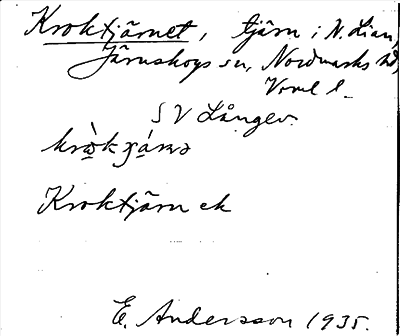 Kroktjärnet, tjärn i N. Lian,
Järnskogs sn, Nordmarks hd,
Vrml l
SV Långev.
Kroktjärn ek
E. Andersson 1935.